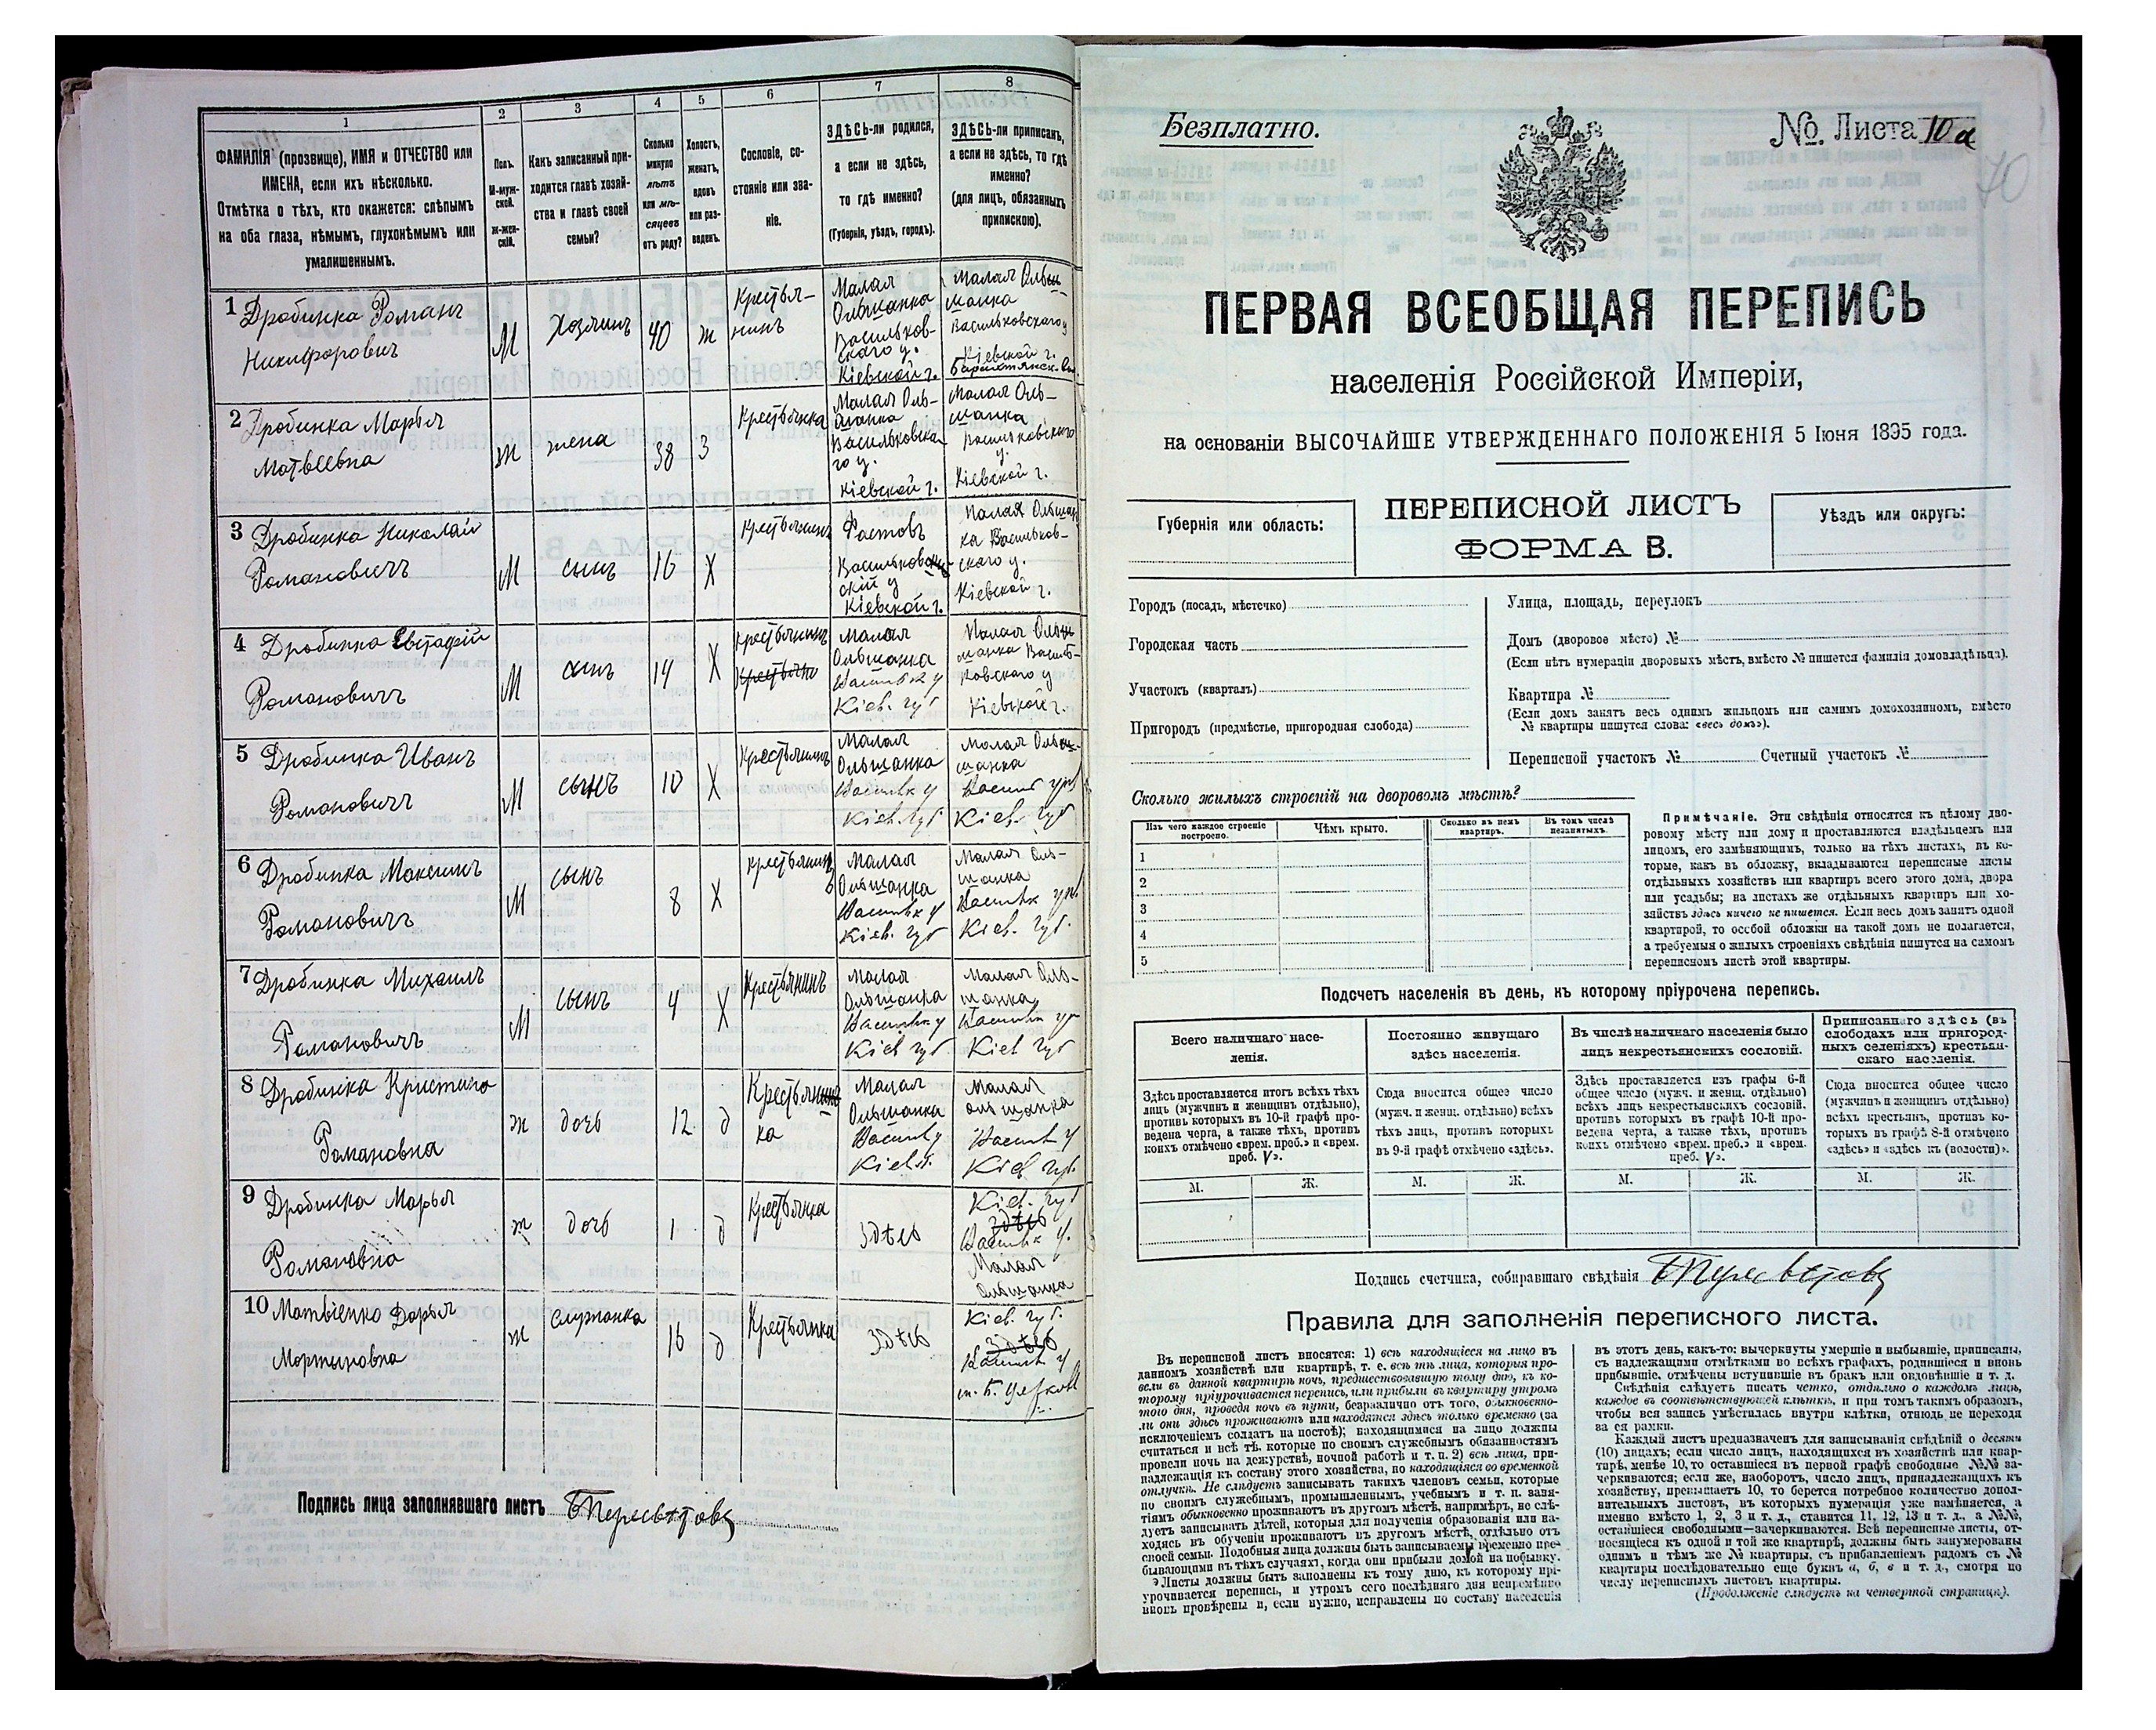 1
2
3
4
5
6
7
8
ФАМИЛІЯ (прозвище), ИМЯ и ОТЧЕСТВО или
ИМЕНА, если ихъ нѣсколько.
Отмѣтка о тѣхъ, кто окажется: слѣпымъ
на оба глаза, нѣмымъ, глухонѣмымъ или
умалишеннымъ.
Полъ.
М-муж-
ской.
Ж-жен-
скій.
Какъ записанный при-
ходится главѣ хозяй-
ства и главѣ своей
семьи?
Сколько
минуло
лѣтъ
или мѣ-
сяцевъ
отъ роду?
Холостъ,
женатъ,
вдовъ
или раз-
веденъ.
Сословіе, со-
стояніе или зва-
ніе.
ЗДѢСЬ-ли родился,
а если не здѣсь,
то гдѣ именно?
(Губернія, уѣздъ, городъ).
ЗДѢСЬ-ли приписанъ,
а если не здѣсь, то гдѣ
именно?
(для лицъ, обязанныхъ
припискою).
1 Дробинка Романъ
Никифоровичъ
М
Хозяинъ
40
ж
Крестья-
нинъ
Малая
Ольшанка
Васильков-
скаго у.
Кіевской г.
Малая Оль
шанка
Васильковскаго у
Кіевской г.
2 Дробинка Марья
Матвѣевна
ж
жена
38
З
Крестьянка
Малая Оль-
шанка
Васильковска-
го у.
Кіевской г.
Малая Оль-
шанка
Васильковскаго
у.
Кіевской г.
3 Дробинка Николай
Романовичъ
М
сынъ
16
Х
Крестьянинъ
Фастовъ
Васильков
скій у
Кіевской г.
Малая Ольшан
ка Васильков-
скаго у.
Кіевской г.
4 Дробинка Евстафій
Романовичъ
М
сынъ
14
Х
Крестьянинъ
Малая
Ольшанка
Васильк у
Кіев. губ
Малая Оль
шанка Василь-
ковскаго у
Кіевской г.
5 Дробинка Иванъ
Романовичъ
М
сынъ
10
Х
Крестьянинъ
Малая
Ольшанка
Васильк у
Кіев. губ
Малая Оль
шанка
Кіев. губ
6 Дробинка Максимъ
Романовичъ
М
сынъ
8
Х
крестьянинъ
Малая
Ольшанка
Васильк у
Кіев. губ
Малая Оль-
шанка
Кіев. губ.
7 Дробинка Михаилъ
Романовичъ
М
сынъ
4
Х
Крестьянинъ
Малая
Ольшанка
Васильк у
Кіев губ
Малая Оль-
шанка
Кіев губ
8 Дробинка Кристина
Романовна
ж
дочь
12
д
Крестьян
ка
Малая
Ольшанка
Васильк у
Малая
Ольшанка
Васильк у
Кіев губ.
9 Дробинка Марья
Романовна
ж
дочь
1
д
Крестьянка
Здѣсь
Кіев. губ
Здѣсь
Васильк у.
Малая
Ольшанка
10 Матвіенко Дарья
Мартыновна
ж
Служанка
16
д
Крестьянка
Здѣсь
Кіев. губ.
Здѣсь
Васильк у
Подпись лица заполнявшаго листъ
Безплатно.
№. Листа 10 а
70
ПЕРВАЯ ВСЕОБЩАЯ ПЕРЕПИСЬ
населенія Россійской Имперіи,
на основаніи ВЫСОЧАЙШЕ УТВЕРЖДЕННАГО ПОЛОЖЕНІЯ 5 Іюня 1895 года.
Губернія или область:
ПЕРЕПИСНОЙ ЛИСТЪ
ФОРМА В.
Уѣздъ или округъ:
Городъ (посадъ, мѣстечко)
Городская часть
Участокъ (кварталъ)
Пригородъ (предмѣстье, пригородная слобода)
Улица, площадь, переулокъ
Домъ (дворовое мѣсто) №
(Если нѣтъ нумераціи дворовыхъ мѣстъ, вмѣсто № пишется фамилія домовладѣльца).
Квартира №
(Если домъ занятъ весь однимъ жильцомъ или самимъ домохозяиномъ, вмѣсто
№ квартиры пишутся слова: «весь домъ»).
Переписной участокъ № Счетный участокъ №
Сколько жилыхъ строеній на дворовомъ мѣстѣ?
Изъ чего каждое строеніе
построено.
Чѣмъ крыто.
Сколько въ немъ
квартиръ.
Въ томъ числѣ
незанятыхъ.
1
2
3
4
5
Примѣчаніе. Эти свѣдѣнія относятся къ цѣлому дво-
ровому мѣсту или дому и проставляются владѣльцемъ или
лицомъ, его замѣняющимъ, только на тѣхъ листахъ, въ ко-
торые, какъ въ обложку, вкладываются переписные листы
отдѣльныхъ хозяйствъ или квартиръ всего этого дома, двора
или усадьбы; на листахъ же отдѣльныхъ квартиръ или хо-
зяйствъ здѣсь ничего не пишется. Если весь домъ занятъ одной
квартирой, то особой обложки на такой домъ не полагается,
а требуемыя о жилыхъ строеніяхъ свѣдѣнія пишутся на самомъ
переписномъ листѣ этой квартиры.
Подсчетъ населенія въ день, къ которому пріурочена перепись.
Всего наличнаго насе-
ленія.
Постоянно живущаго
здѣсь населенія.
Въ числѣ наличнаго населенія было
лицъ некрестьянскихъ сословій.
Приписаннаго здѣсь (въ
слободахъ или пригород-
ныхъ селеніяхъ) крестьян-
скаго населенія.
Здѣсь проставляется итогъ всѣхъ тѣхъ
лицъ (мужчинъ и женщинъ отдѣльно),
противъ которыхъ въ 10-й графѣ про-
ведена черта, а также тѣхъ, противъ
коихъ отмѣчено «врем. преб.» и «врем.
преб. V».
Сюда вносится общее число
(мужч. и женщ. отдѣльно) всѣхъ
тѣхъ лицъ, противъ которыхъ
въ 9-й графѣ отмѣчено «здѣсь».
Здѣсь проставляется изъ графы 6-й
общее число (мужч. и женщ. отдѣльно)
всѣхъ лицъ некрестьянскихъ сословій.
противъ которыхъ въ графѣ 10-й про-
ведена черта, а также тѣхъ, противъ
коихъ отмѣчено «врем. преб.» и «врем.
преб. V».
Сюда вносится общее число
(мужчинъ и женщинъ отдѣльно)
всѣхъ крестьянъ, противъ ко-
торыхъ въ графѣ 8-й отмѣчено
«здѣсь» и «здѣсь къ (волости)».
М. Ж. М. Ж. М. Ж. М. Ж.
Подпись счетчика, собиравшаго свѣдѣнія
Правила для заполненія переписного листа.
Въ переписной листъ вносятся: 1) всѣ находящіеся на лицо въ
данномъ хозяйствѣ или квартирѣ, т. е. всѣ тѣ лица, которыя про-
вели въ данной квартирѣ ночь, предшествовавшую тому дню, къ ко-
торому пріурочивается перепись, или прибыли въ квартиру утромъ
того дня, проведя ночь въ пути, безразлично отъ того, обыкновенно-
ли они здѣсь проживаютъ или находятся здѣсь только временно (за
исключеніемъ солдатъ на постоѣ); находящимися на лицо должны
считаться и всѣ тѣ, которые по своимъ служебнымъ обязанностямъ
провели ночь на дежурствѣ, ночной работѣ и т. п. 2) всѣ лица, при-
надлежащія къ составу этого хозяйства, но находящіяся во временной
отлучкѣ. Не слѣдуетъ записывать такихъ членовъ семьи, которые
по своимъ служебнымъ, промышленнымъ, учебнымъ и т. п. заня-
тіямъ обыкновенно проживаютъ въ другомъ мѣстѣ, напримѣръ, не слѣ-
дуетъ записывать дѣтей, которыя для полученія образованія или на-
ходясь въ обученіи проживаютъ въ другомъ мѣстѣ, отдѣльно отъ
своей семьи. Подобныя лица должны быть записываемы временно пре-
бывающими въ тѣхъ случаяхъ, когда они прибыли домой на побывку.
Листы должны быть заполнены къ тому дню, къ которому прі-
урочивается перепись, и утромъ сего послѣдняго дня непремѣнно
вновь провѣрены и, если нужно, исправлены по составу населенія
въ этотъ день, какъ-то: вычеркнуты умершіе и выбывшіе, приписаны,
съ надлежащими отмѣтками во всѣхъ графахъ, родившіеся и вновь
прибывшіе, отмѣчены вступившіе въ бракъ или овдовѣвшіе и т. д.
Свѣдѣнія слѣдуетъ писать четко, отдѣльно о каждомъ лицѣ,
каждое въ соотвѣтствующей клѣткѣ, и при томъ такимъ образомъ,
чтобы вся запись умѣстилась внутри клѣтки, отнюдь не переходя
за ея рамки.
Каждый листъ предназначенъ для записыванія свѣдѣній о десяти
(10) лицахъ; если число лицъ, находящихся въ хозяйствѣ или квар-
тирѣ, менѣе 10, то оставшіеся въ первой графѣ свободные №№ за-
черкиваются; если же, наоборотъ, число лицъ, принадлежащихъ къ
хозяйству, превышаетъ 10, то берется потребное количество допол-
нительныхъ листовъ, въ которыхъ нумерація уже измѣняется, а
именно вмѣсто 1, 2, 3 и т. д., ставится 11, 12, 13 и т. д., а №№,
оставшіеся свободными—зачеркиваются. Всѣ переписные листы, от-
носящіеся къ одной и той же квартирѣ, должны быть занумерованы
однимъ и тѣмъ же № квартиры, съ прибавленіемъ рядомъ съ №
квартиры послѣдовательно еще буквъ а, б, в и т. д., смотря по
числу переписныхъ листовъ квартиры.
(Продолженіе слѣдуетъ на четвертой страницѣ).